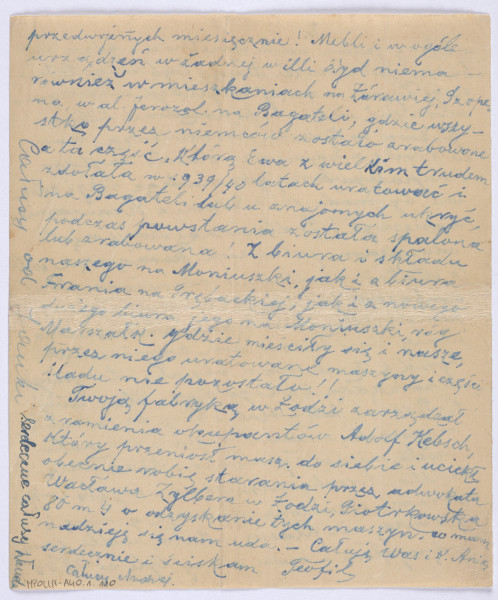 przedwojennych miesięcznie! Mebli i w ogóle
urządzeń w żadnej willi żyd niema —
również w mieszkaniach na Żórawiej, Szope
na, w al. Jerozol. na Bagateli, gdzie wszy-
stko przez niemców zostało zrabowane
a tu część, którą Ewa z wielkim trudem
zdołała w 1939/40 latach uratować i
na Bagateli lub u znajomych ukryć,
podczas powstania została spalona
lub zrabowana! Z biura i składu
naszego na Moniuszki, jak i z biura
Frania na Trębackiej, jak i z nowego
biura jego na Moniuszki, róg
Marszałk. gdzie mieściły się i nasze,
przez niego uratowane maszyny i części
śladu nie pozostało!!
Twoją fabryką w Łodzi zarządzał
z ramienia okupantów Adolf Hebsch,
który przeniósł masz. do siebie i uciekł,
obecnie robię starania przez adwokata
Wacława Zylbera w Łodzi, Piotrkowska
80 m 4 o odzyskanie tych maszyn. co mam
nadzieję się nam uda. — Całuję Was i K. Anię
serdecznie i ściskam Teofil
całusy
Całusy od
serdeczne całusy